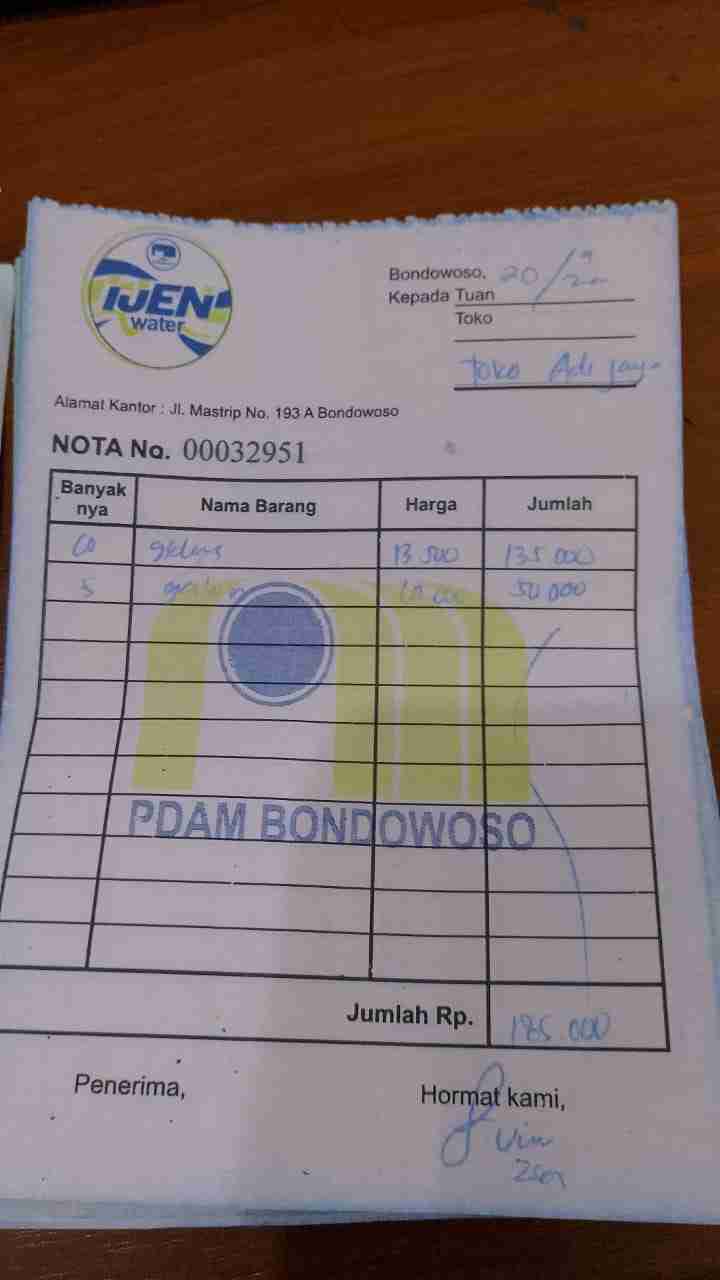 IJEN
water
Bondowoso, 20/9
Kepada Tuan
Toko
Toko Adi jaya
Alamat Kantor : Jl. Mastrip No. 193 A Bondowoso
NOTA No. 00032951
Banyak nya Nama Barang Harga Jumlah
10 gelas 13 500 135 000
5 galon 10 000 50 000
PDAM BONDOWOSO
Jumlah Rp. 185.000
Penerima, Hormat kami,